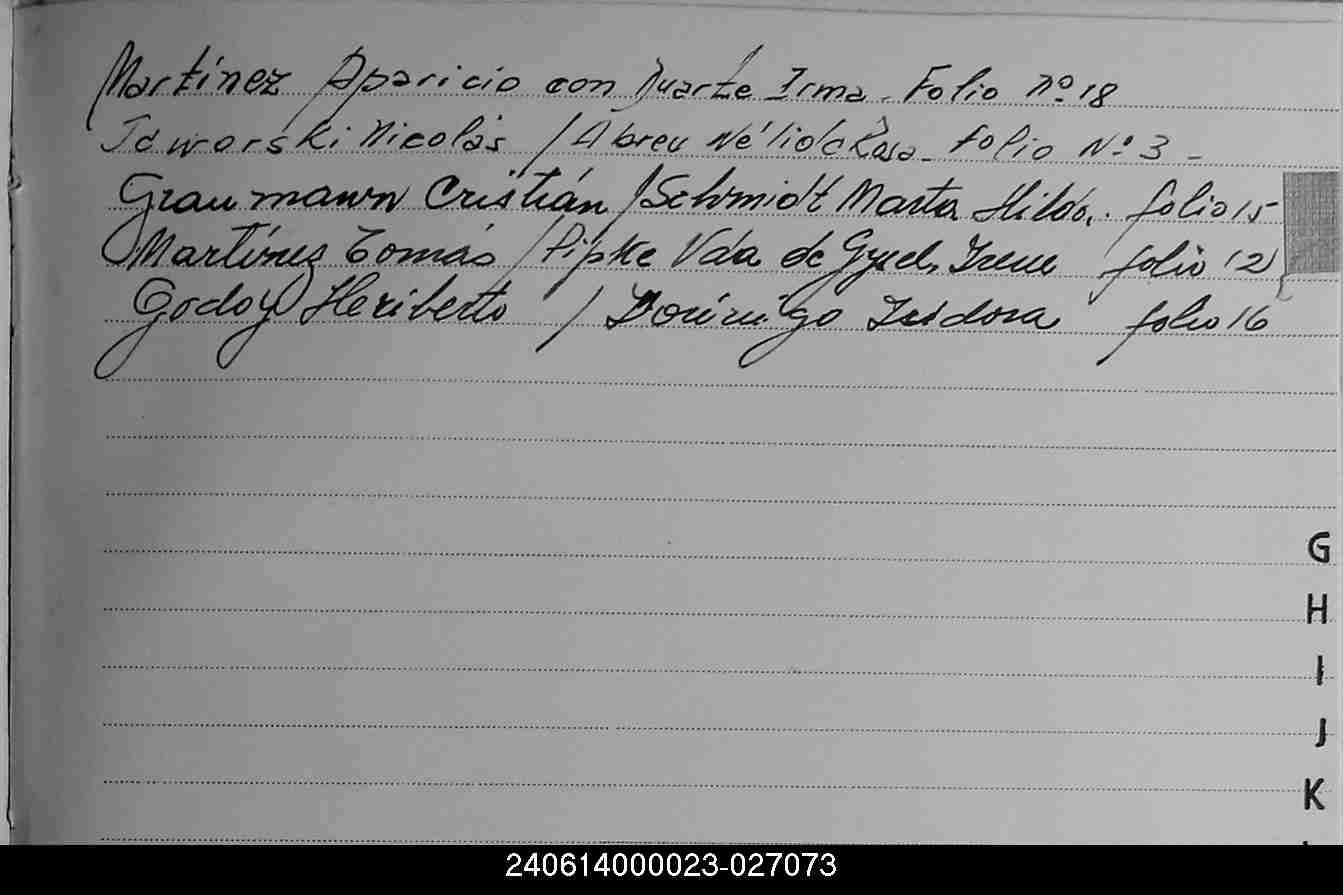 Martínez Aparicio con Duarte Irma. Folio Nº 18
Jaworski Nicolás / Abreu Nélida Rosa. folio Nº 3 -
Graumann Cristián / Schmidt Marta Hilda. folio 15
Martínez Tomás / Pipke Vda de Irene folio 12
Godoy Heriberto / Domingo Isidora folio 16
G
H
I
J
K
240614000023-027073